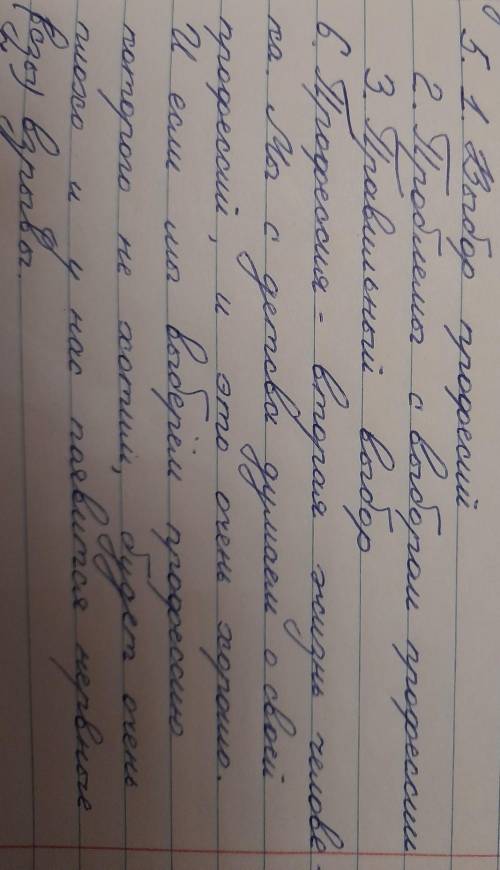 5. 1. Выбор професий
2. Проблемы с выбором профессии
3. Правильный выбор
6. Профессия - вторая жизнь челове-
ка. Мы с детсва думаем о своей
професий, и это очень хорошо.
И если мы выберём професию
которого не хотим, будет очень
плохо и у нас паявится нервные
взрывы.